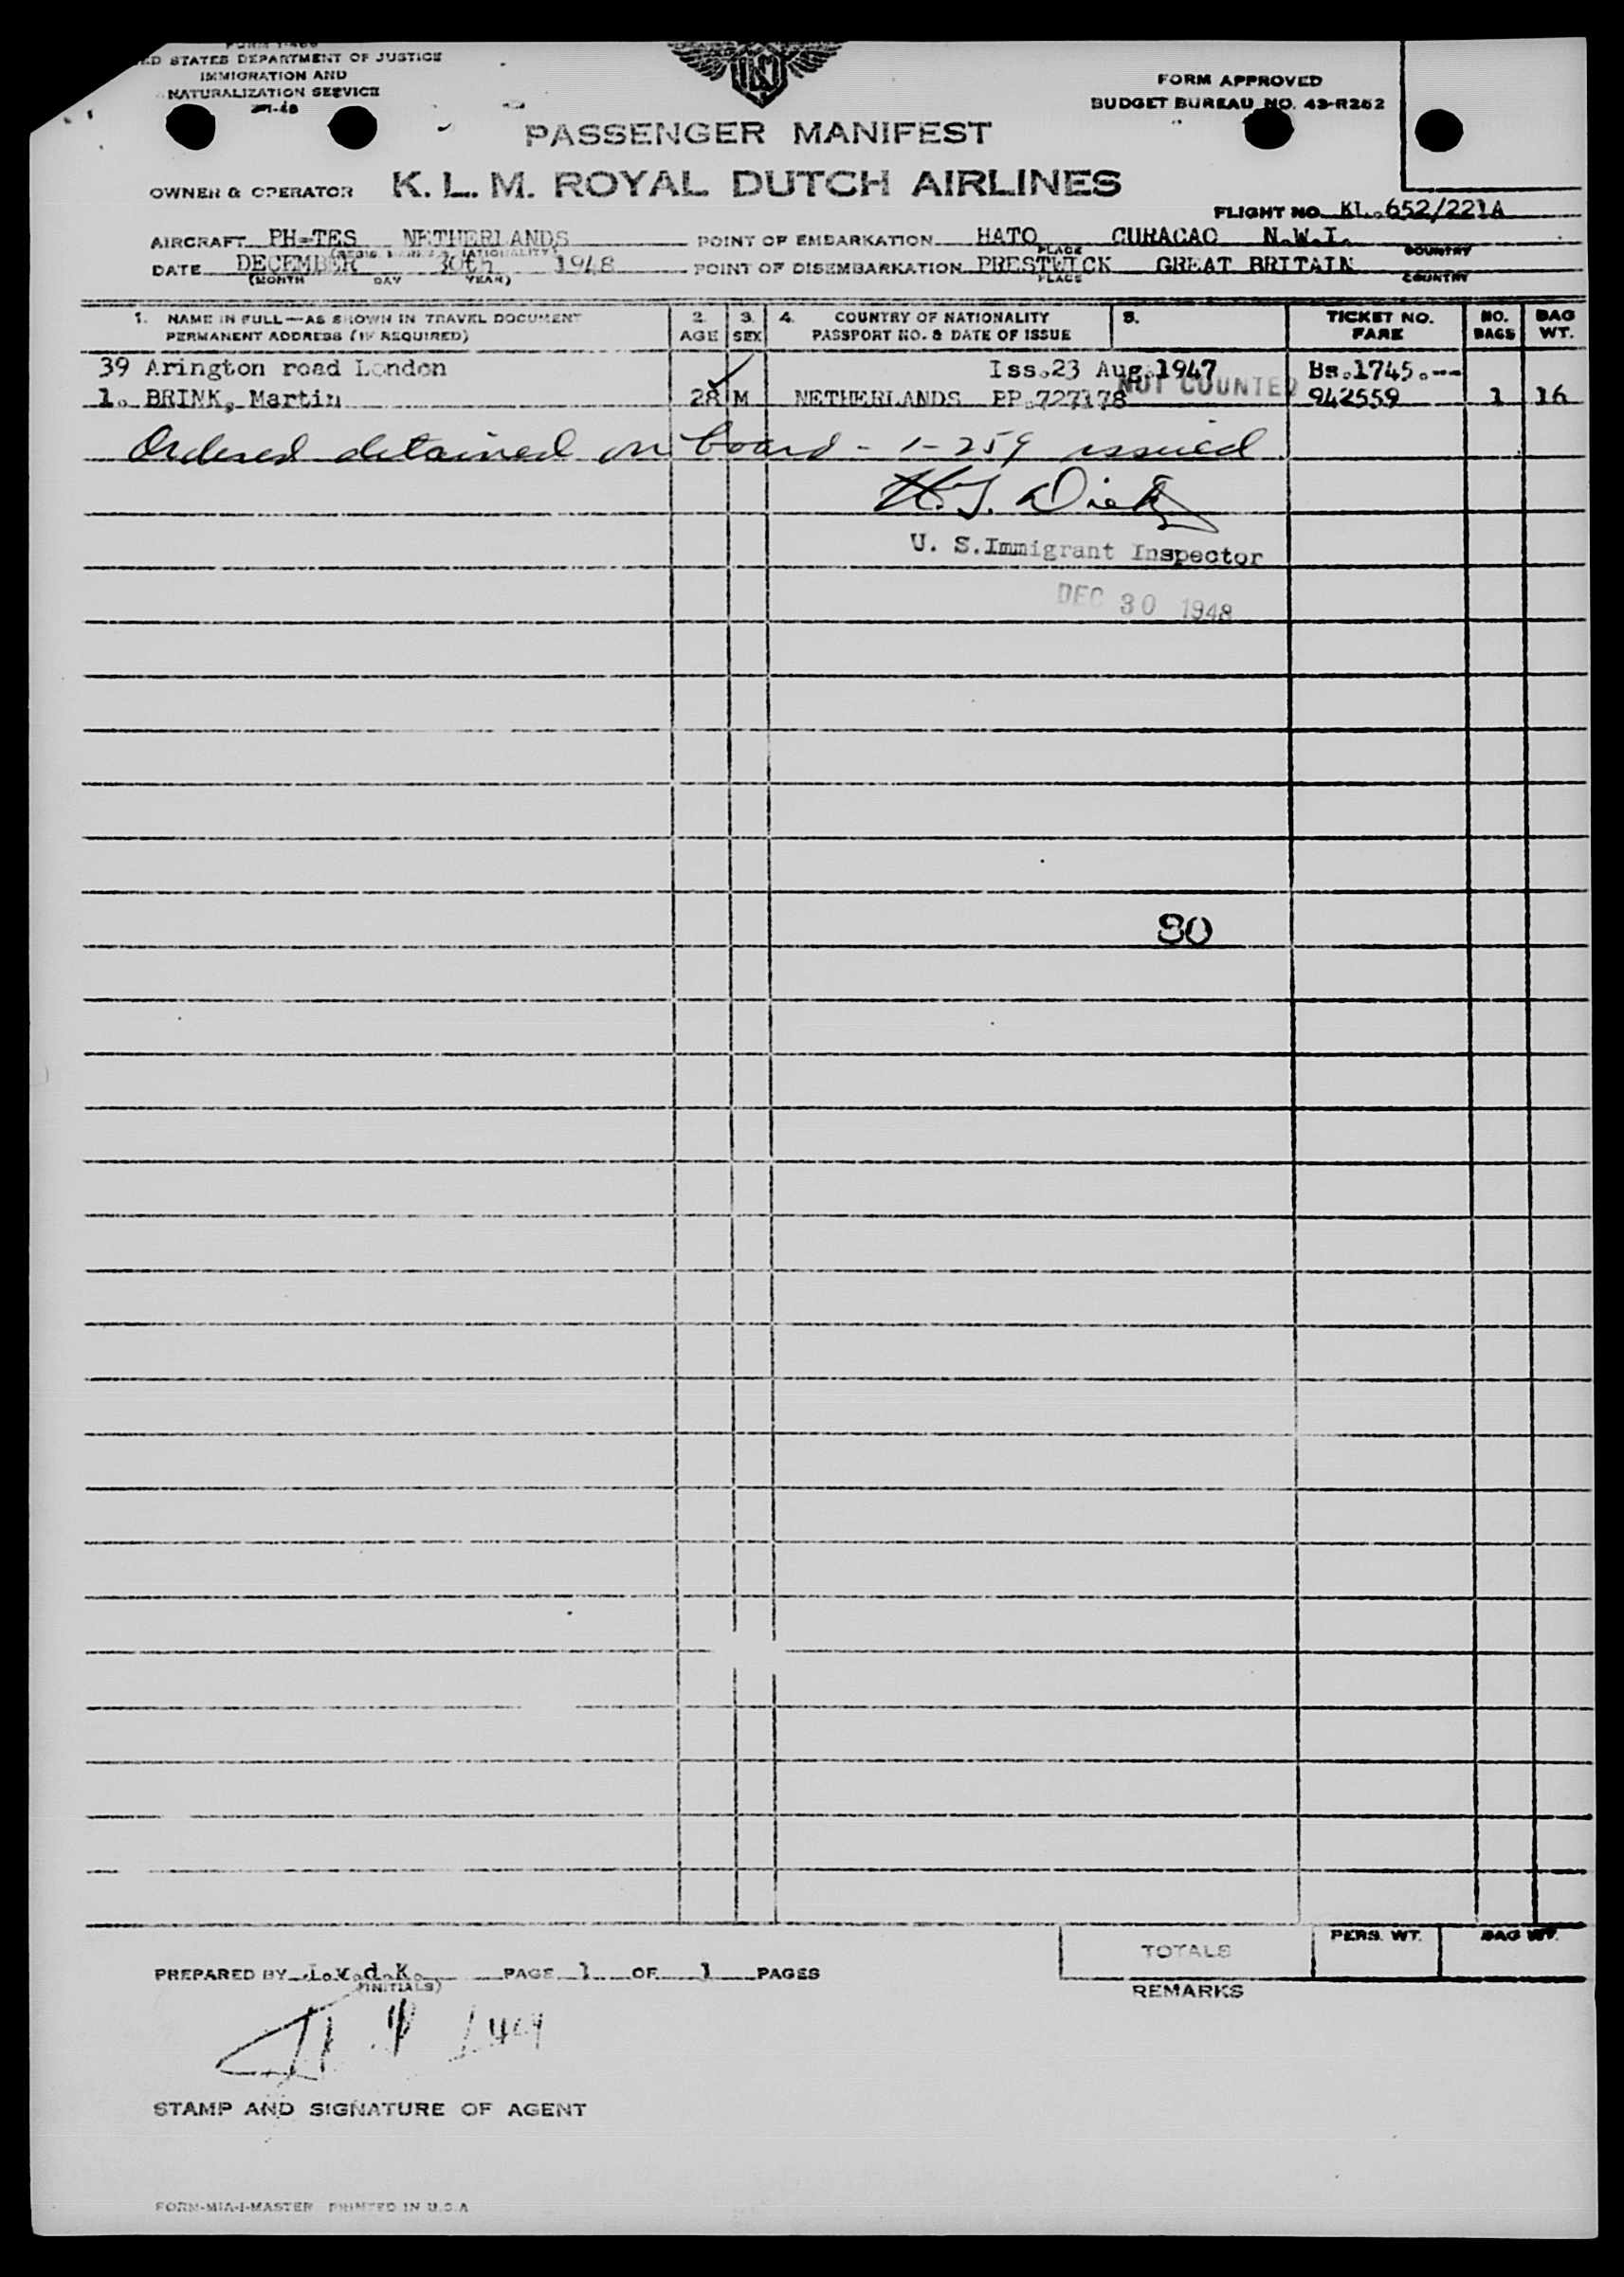 ED STATES DEPARTMENT OF JUSTICE
IMMIGRATION AND
NATURALIZATION SERVICE
FORM APPROVED
BUDGET BUREAU NO. 43-R262
PASSENGER MANIFEST
OWNER & OPERATOR K. L. M. ROYAL DUTCH AIRLINES
FLIGHT NO. KL.652/221A
AIRCRAFT PH-TES NETHERLANDS POINT OF EMBARKATION HATO CURACAO N.W.I.
PLACE COUNTRY
DATE DECEMBER 30th 1948 POINT OF DISEMBARKATION PRESTWICK GREAT BRITAIN
(MONTH DAY YEAR) PLACE COUNTRY
1. NAME IN FULL—AS SHOWN IN TRAVEL DOCUMENT 2. 3. 4. COUNTRY OF NATIONALITY 5. TICKET NO. NO. BAG
PERMANENT ADDRESS (IF REQUIRED) AGE SEX PASSPORT NO. & DATE OF ISSUE FARE BAGS WT.
39 Arington road London Iss.23 Aug.1947 Bs.1745.--
NOT COUNTED
1. BRINK, Martin 28 M NETHERLANDS PP.727178 942559 1 16
Ordered detained on board - I-259 issued
U. S. Immigrant Inspector
DEC 30 1948
30
TOTALS PERS. WT. BAG WT.
PREPARED BY I.v.d.K. PAGE 1 OF 1 PAGES
(INITIALS)
REMARKS
STAMP AND SIGNATURE OF AGENT
FORM-MIA-1-MASTER PRINTED IN U.S.A